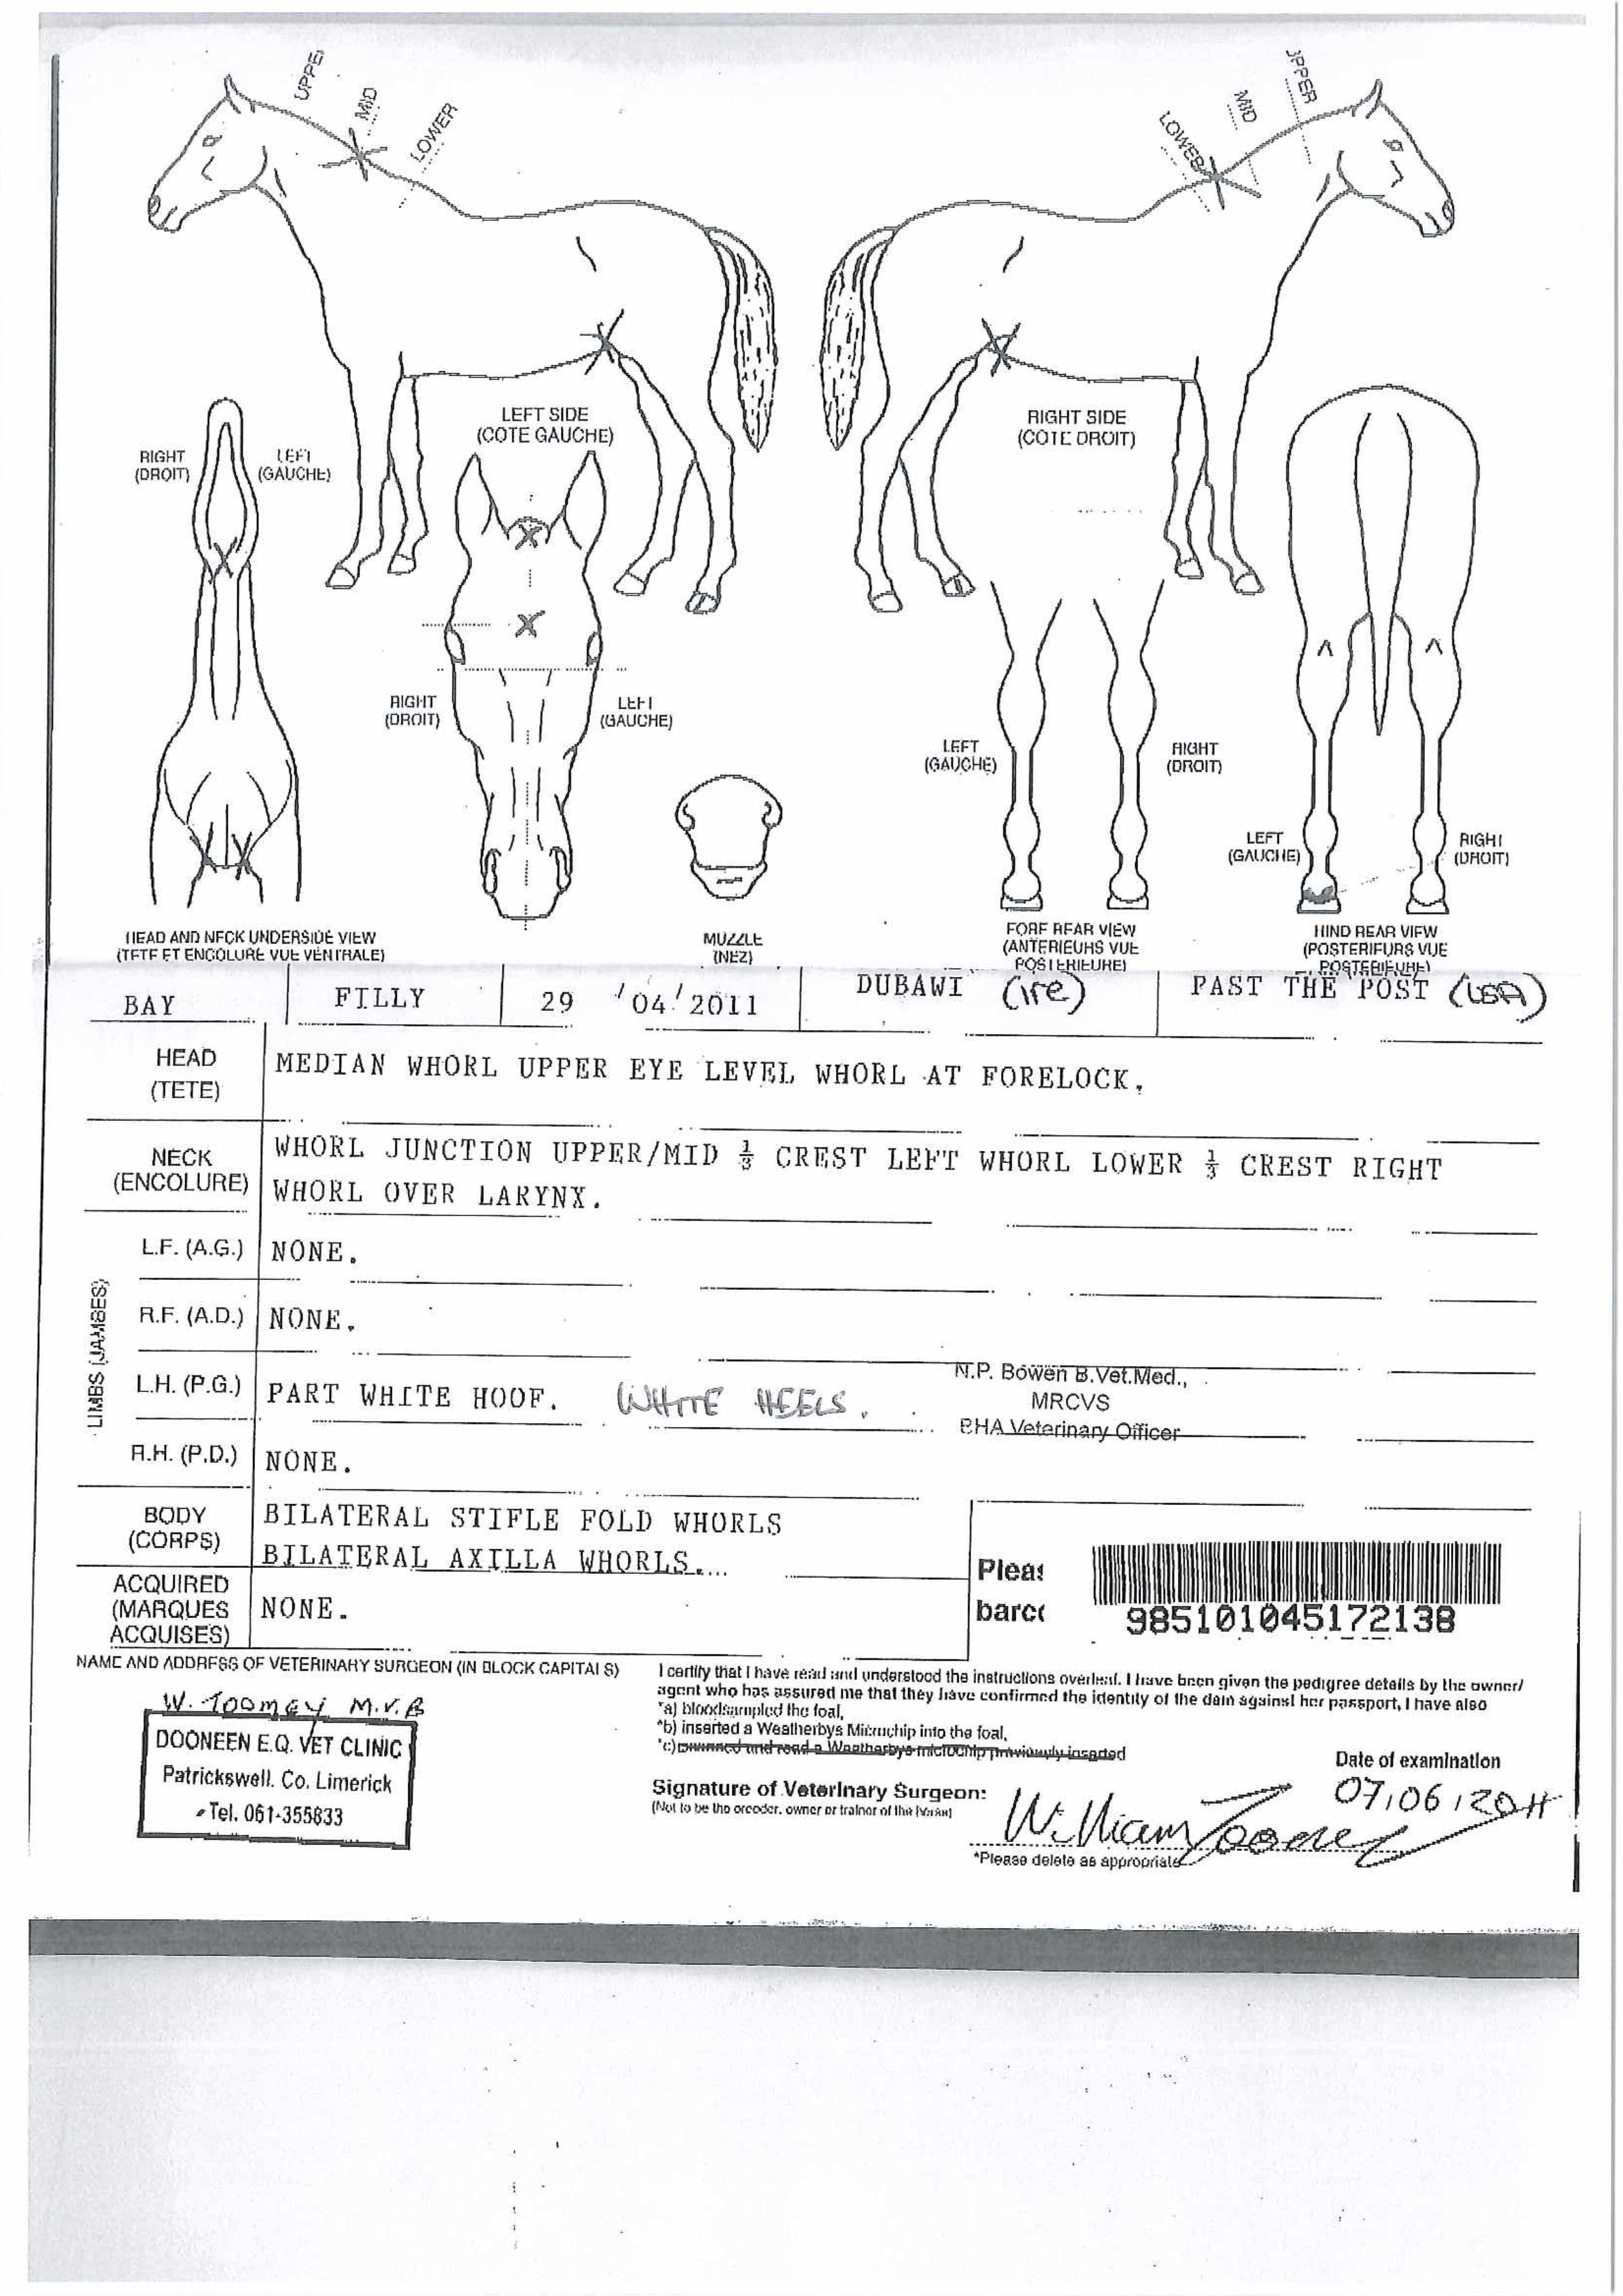 UPPER
MID
LOWER
UPPER
MID
LOWER
LEFT SIDE
(COTE GAUCHE)
RIGHT SIDE
(COTE DROIT)
RIGHT
(DROIT)
LEFT
(GAUCHE)
RIGHT
(DROIT)
LEFT
(GAUCHE)
LEFT
(GAUCHE)
RIGHT
(DROIT)
LEFT
(GAUCHE)
RIGHT
(DROIT)
HEAD AND NECK UNDERSIDE VIEW
(TETE ET ENCOLURE VUE VENTRALE)
MUZZLE
(NEZ)
FORE REAR VIEW
(ANTERIEURS VUE
POSTERIEURE)
HIND REAR VIEW
(POSTERIEURS VUE
POSTERIEURE)
BAY FILLY 29 /04/ 2011 DUBAWI (ire) PAST THE POST (USA)
HEAD
(TETE)
MEDIAN WHORL UPPER EYE LEVEL WHORL AT FORELOCK.
NECK
(ENCOLURE)
WHORL JUNCTION UPPER/MID ⅓ CREST LEFT WHORL LOWER ⅓ CREST RIGHT
WHORL OVER LARYNX.
LIMBS (JAMBES)
L.F. (A.G.) NONE.
R.F. (A.D.) NONE.
L.H. (P.G.) PART WHITE HOOF. WHITE HEELS.
N.P. Bowen B.Vet.Med.,
MRCVS
BHA Veterinary Officer
R.H. (P.D.) NONE.
BODY
(CORPS)
BILATERAL STIFLE FOLD WHORLS
BILATERAL AXILLA WHORLS.
ACQUIRED
(MARQUES
ACQUISES)
NONE.
Pleas
barc
985101045172138
NAME AND ADDRESS OF VETERINARY SURGEON (IN BLOCK CAPITALS)
W. TOOMEY M.V.B
DOONEEN E.Q. VET CLINIC
Patrickswell. Co. Limerick
Tel. 061-355833
I certify that I have read and understood the instructions overleaf. I have been given the pedigree details by the owner/
agent who has assured me that they have confirmed the identity of the dam against her passport, I have also
*a) bloodsampled the foal,
*b) inserted a Weatherbys Microchip into the foal,
*c) scanned and read a Weatherbys microchip previously inserted
Date of examination
07,06,2011
Signature of Veterinary Surgeon:
(Not to be the breeder, owner or trainor of the horse)
William Toomey
*Please delete as appropriate